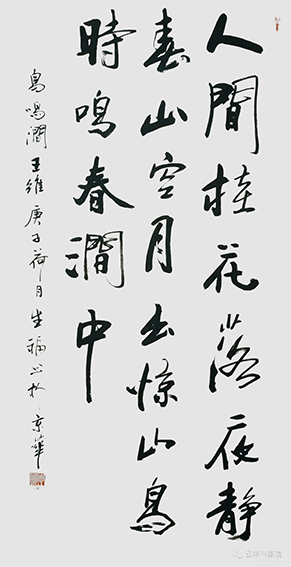 人間桂花落夜靜
春山空月出惊山鳥
時鳴春澗中
鳥鳴澗王維庚子荷月生福书於京華